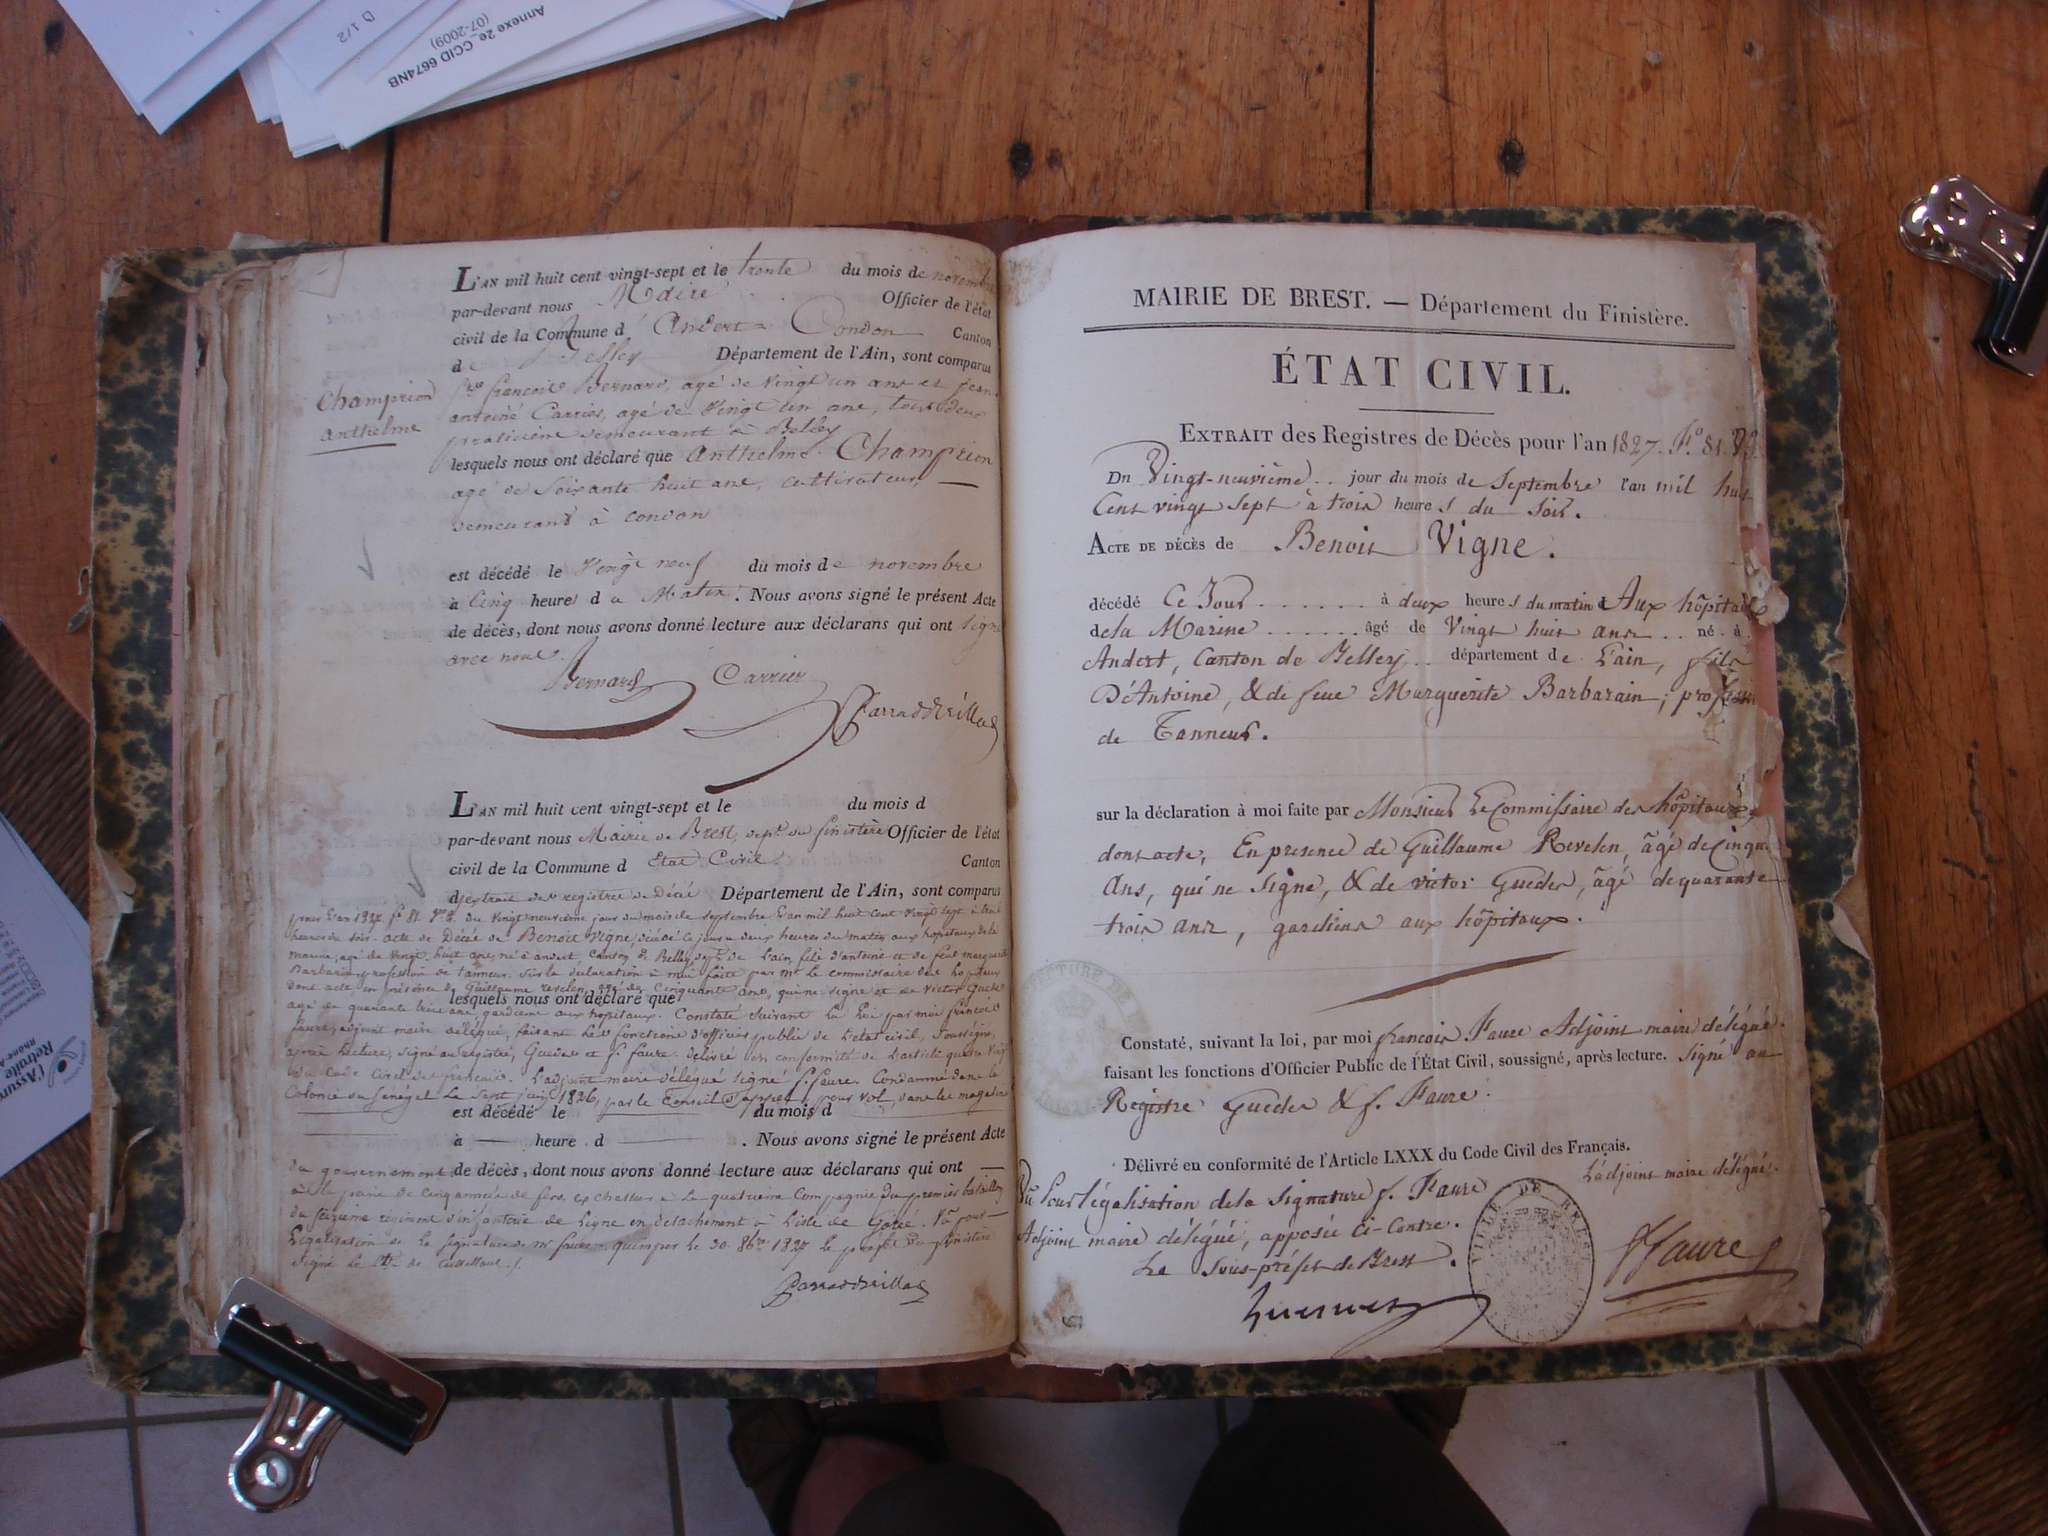 Annexe 2e_CCID 6674NB
(07-2009)
D 1/2
L'AN mil huit cent vingt-sept et le trente du mois de novembre
par-devant nous Maire Officier de l'état
civil de la Commune d'Andert-Condon Canton
de Belley Département de l'Ain, sont comparus
françois Bernard, agé de vingt un ans et jean
antoine Carrier, agé de vingt un ans, tous deux
praticiens demeurant à Belley
Champrion
anthelme
lesquels nous ont déclaré que Anthelme Champrion
agé de soixante huit ans, cultivateur,
demeurant à condon
est décédé le vingt neuf du mois de novembre
à Cinq heures du Matin. Nous avons signé le présent Acte
de décès, dont nous avons donné lecture aux déclarans qui ont signé
avec nous.
Bernard Carrier
L'AN mil huit cent vingt-sept et le du mois d
par-devant nous Mairie de Brest, dept. du finistère Officier de l'état
civil de la Commune d Etat Civil Canton
d extrait des registres de Décès Département de l'Ain, sont comparus
pour l'an 1827 fo. 81 du vingt neuvième jour du mois de septembre l'an mil huit cent vingt sept à trois
heures du soir. acte de Décès de Benoit Vigne, décédé ce jour à deux heures du matin aux hopitaux de la
marine, agé de vingt huit ans, né à andert, canton de Belley, dept. de l'ain, fils d'antoine et de feue marguerite
Barbarain, profession de tanneur. Sur la déclaration à moi faite par Mr. le commissaire des hopitaux
dont acte, en présence de Guillaume revelen, agé de Cinquante ans, qui ne signe et de victor Gueder
lesquels nous ont déclaré que
agé de quarante trois ans, gardiens aux hopitaux. Constaté suivant la loi par moi françois
faure, adjoint maire délégué, faisant les fonctions d'officier public de l'état civil, soussigné,
après lecture, signé au registre, Gueder et f. faure. délivré en conformité de l'article quatre vingt
du Code Civil des français. L'adjoint maire délégué signé f. faure. Condamné dans la
Colonie du Sénégal le sept juin 1826, par le Conseil pour vol, dans les magasins
est décédé le du mois d
à heure d . Nous avons signé le présent Acte
du gouvernement de décès, dont nous avons donné lecture aux déclarans qui ont
à la peine de cinq années de fers, ex chasseur à la quatrième Compagnie du premier bataillon
du seizième régiment d'infanterie de Ligne en détachement à l'isle de Gorée. Vu pour
Légalisation de la signature de Mr faure. quimper le 30 8bre 1827 le préfet du finistère
signé le Cte. de
MAIRIE DE BREST. — Département du Finistère.
ÉTAT CIVIL.
EXTRAIT des Registres de Décès pour l'an 1827. Fo. 81.
Du Vingt-neuvième jour du mois de Septembre l'an mil huit
Cent vingt sept à trois heures du soir.
ACTE DE DÉCÈS de Benoit Vigne.
décédé Ce Jour à deux heures du matin Aux hôpitaux
de la Marine âgé de Vingt huit ans né à
Andert, Canton de Belley département de L'ain, fils
D'Antoine, & de feue Marguerite Barbarain; profession
de Tanneur.
sur la déclaration à moi faite par Monsieur Le Commissaire des hôpitaux
dont acte, En presence de Guillaume Revelen, âgé de Cinqu.
Ans, qui ne signe, & de victor Gueder, âgé de quarante
trois ans, gardiens aux hôpitaux.
Constaté, suivant la loi, par moi françois Faure Adjoint maire délégué
faisant les fonctions d'Officier Public de l'État Civil, soussigné, après lecture. Signé au
Registre Gueder & f. Faure.
Délivré en conformité de l'Article LXXX du Code Civil des Français.
L'adjoint maire délégué.
Vu Pour légalisation de la Signature f. Faure
Adjoint maire délégué, apposée Ci-Contre.
Le Sous-préfet de Brest.
VILLE DE BREST
f Faure
L'Assurance
Retraite